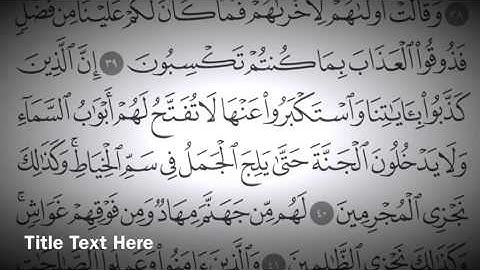 ٣٨ وَقَالَتْ أُولَىٰهُمْ لِأُخْرَىٰهُمْ فَمَا كَانَ لَكُمْ عَلَيْنَا مِن فَضْلٍ
فَذُوقُوا۟ ٱلْعَذَابَ بِمَا كُنتُمْ تَكْسِبُونَ ٣٩ إِنَّ ٱلَّذِينَ
كَذَّبُوا۟ بِـَٔايَـٰتِنَا وَٱسْتَكْبَرُوا۟ عَنْهَا لَا تُفَتَّحُ لَهُمْ أَبْوَٰبُ ٱلسَّمَآءِ
وَلَا يَدْخُلُونَ ٱلْجَنَّةَ حَتَّىٰ يَلِجَ ٱلْجَمَلُ فِى سَمِّ ٱلْخِيَاطِ ۚ وَكَذَٰلِكَ
نَجْزِى ٱلْمُجْرِمِينَ ٤٠ لَهُم مِّن جَهَنَّمَ مِهَادٌ وَمِن فَوْقِهِمْ غَوَاشٍ ۚ
وَكَذَٰلِكَ نَجْزِى ٱلظَّـٰلِمِينَ ٤١ وَٱلَّذِينَ ءَامَنُوا۟ وَعَمِلُوا۟ ٱلصَّـٰلِحَـٰتِ
Title Text Here